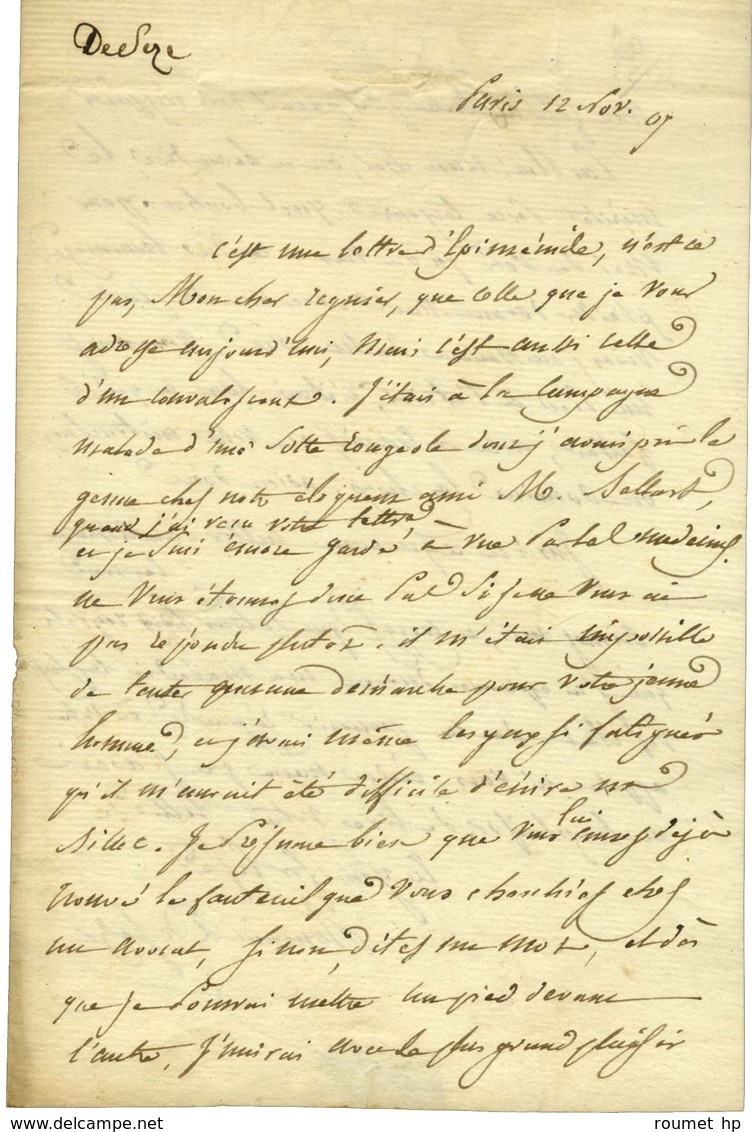 DeSeze
Paris 12 Nov. 07
c'est une lettre d'Epiménide, n'est ce
pas, Mon cher regnier, que celle que je vous
adresse aujourd'hui, Mais c'est aussi celle
d'un convalescent. J'étais à la Campagne
malade d'une sotte rougeole dont j'avais pris le
germe chez notre éloquent ami M. Bellart,
quand j'ai reçu votre lettre,
et je suis encore gardé à vue par les medecins.
ne vous étonnez donc pas si je ne vous ai
pas répondu plutot. il m'était impossible
de tenter aucune démarche pour votre jeune
homme, et j'avais même les yeux si fatigués
qu'il m'aurait été difficile d'écrire un
billet. Je présume bien que vous lui aurez déjà
trouvé le fauteuil que vous cherchiez chez
un avocat, sinon, dites un mot, et dès
que je pourrai mettre un pied devant
l'autre, j'irai avec le plus grand plaisir
www.delcampe.net
roumet hp